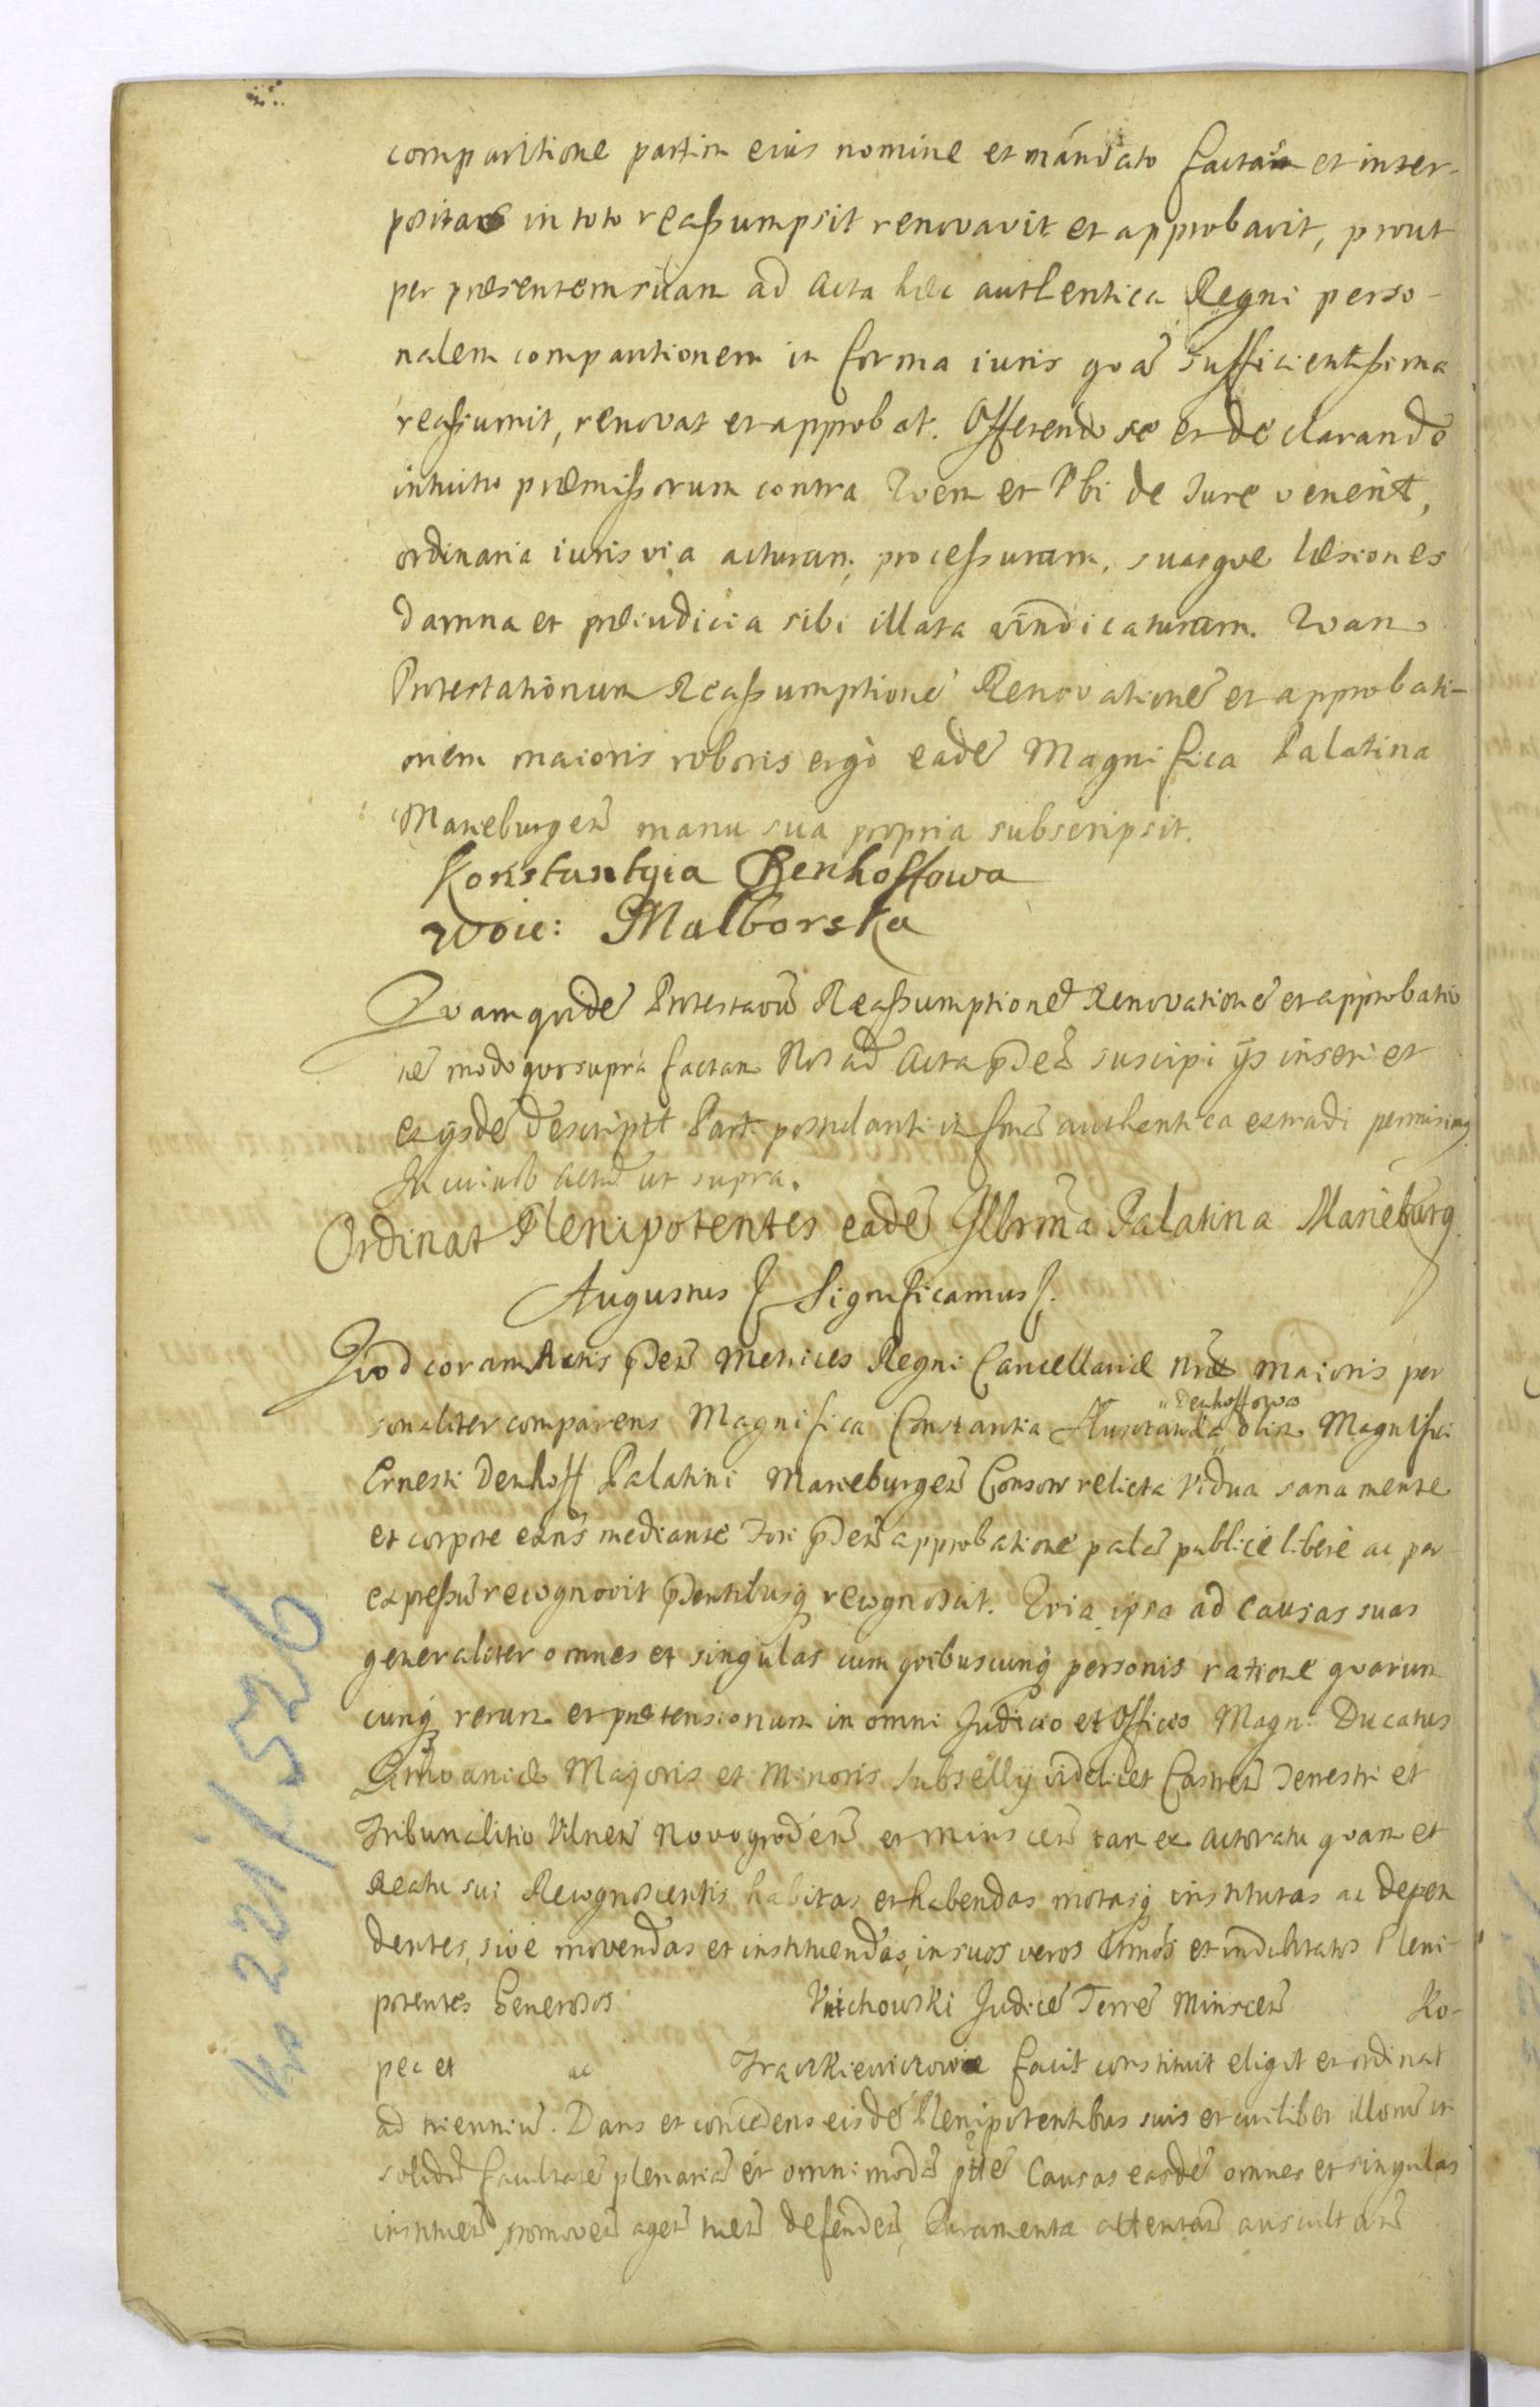 comparitione partim eius nomine et mandato factam et inter-
positam in toto reassumpsit renovavit et approbavit, prout
per præsentem suam ad Acta hæc authentica Regni perso-
nalem comparitionem in forma iuris qua sufficientissima
reassumit, renovat et approbat. Offerendo se et declarando
intuitu præmissorum contra Quem et Vbi de Jure venerit,
ordinaria iuris via acturam, processuram, suasque læsiones
damna et præiudicia sibi illata vindicaturam. Quam
Protestationum Reassumptione Renovatione et approbati-
onem maioris roboris ergò eade Magnifica Palatina
Marieburgen manu sua propria subscripsit.
Konstantyia Denhoffowa
Woie: Malborska
Quamquide Protestaou Reassumptione Renovatione et approbatio
ne modo quo supra factam Nos ad Acta pden suscipi ijs inseri et
ex ijsde descriptt Parti postulanti in forma authentica extradi permisimus
In cuius Actu ut supra.
Ordinat Plenipotentes eade Illrma Palatina Marieburg.
Augustus Significamus
Quod coram Actis pden Metrices Regni Cancellariæ Nræ maioris per
sonaliter comparens Magnifica Constantia
"Denhoffowa
olim Magnifici
Ernesti Denhoff Palatini Marieburgen Consors relicta Vidua sana mente
et corpore exns mediante Fori pden approbatione pala publice libere ac per
expressu recognovit pdentibusq recognoscit. Quia ipsa ad causas suas
generaliter omnes et singulas cum quibuscunq personis ratione quarum
cunq rerum et prætensionum in omni Judicio et Officio Magni Ducatus
Lithvaniæ Majoris et Minoris Subsellij videlicet Castren Terrestri et
Tribunalitio Vilnen Novogroden et Minscen tam ex Actoratu quam et
Reatu sui Recognoscentis habitas et habendas motasq institutas ac depen
dentes, sive movendas et instituendas, in suos veros ltmos et indubitatos Pleni-
potentes Generosos Vnichowski Judice Terre Minscen Ko-
pec et ac Frackiewiczowie facit constituit eligit et ordinat
ad trienniu. Dans et concedens eisde Plenipotentibus suis et cuilibet illoru in
solidu facultate plenaria et omnimoda ptte Causas easde omnes et singulas
instituen promoven agen tuen defenden, Juramenta attentan auscultan
No 221/526